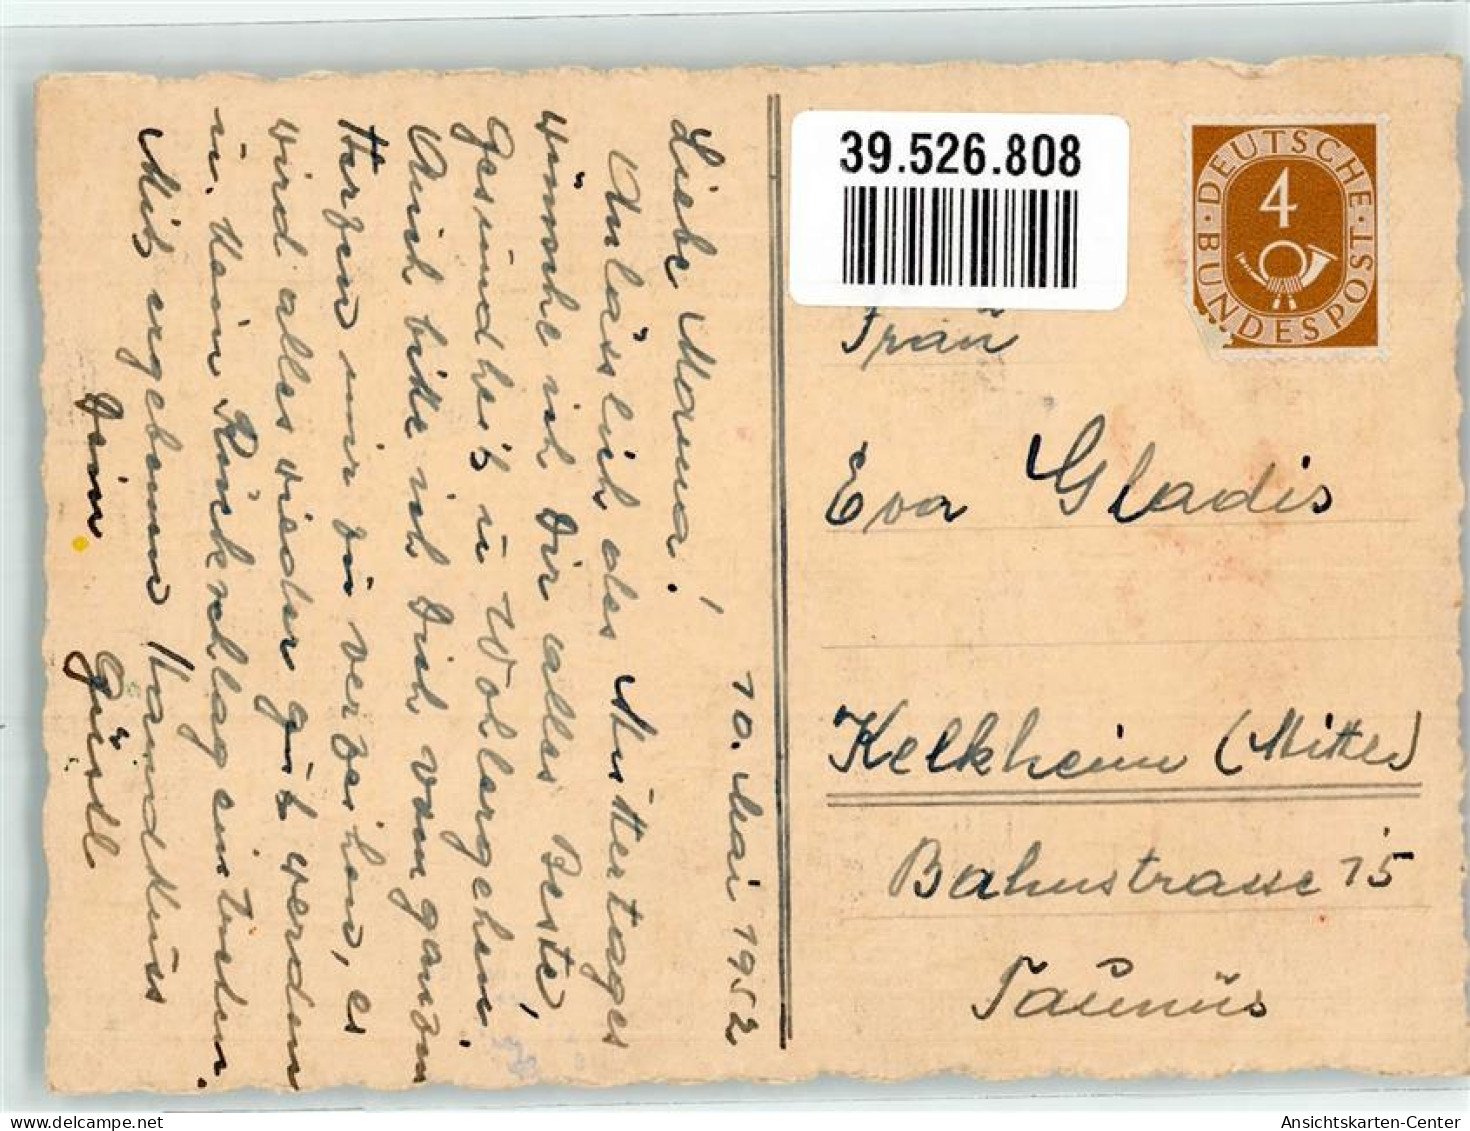 10. Mai 1952
Liebe Mama!
Anlässlich des Muttertages
wünsche ich Dir alles Beste,
Gesundheit u Wohlergehen.
Auch bitte ich Dich von ganzem
Herzen mir zu verzeihen, es
wird alles wieder gut werden
u. kein Rückschlag eintreten.
Mit ergebenem Handkuss
Dein Gustl
39.526.808
DEUTSCHE
4
BUNDESPOST
Frau
Eva Gladis
Kelkheim (Mitte)
Bahnstrasse 15
Taunus
Ansichtskarten-Center